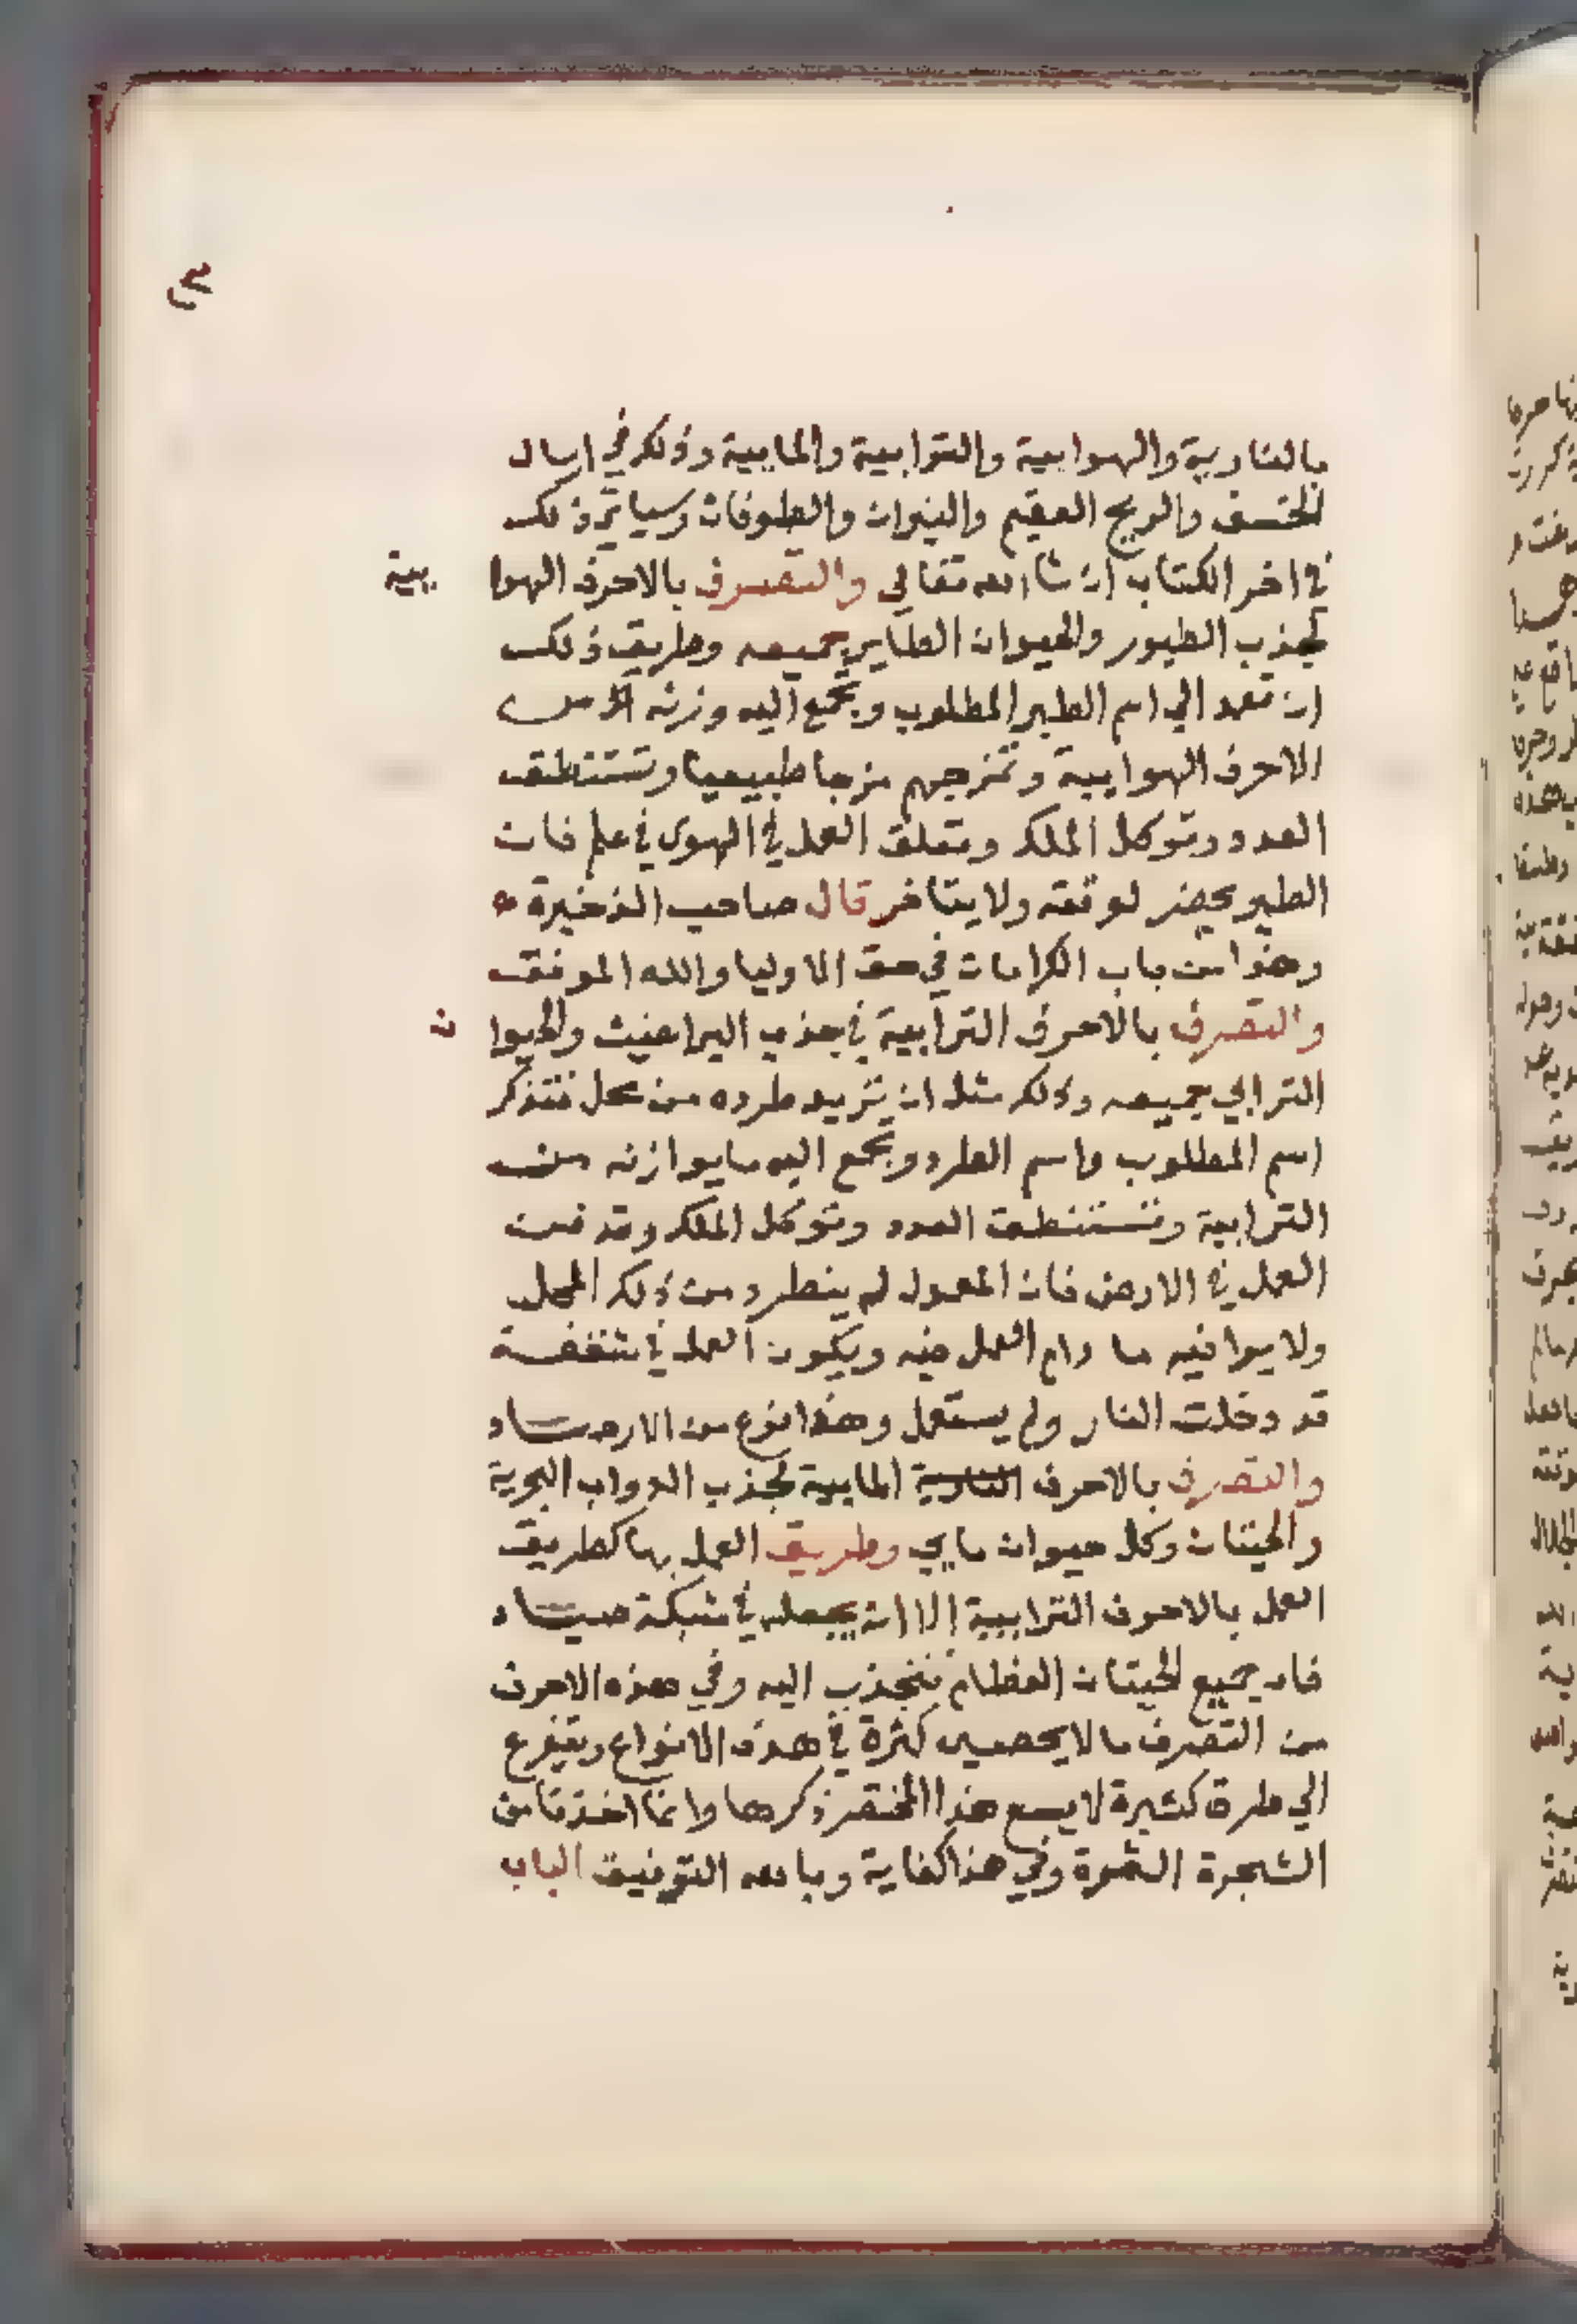 بالنارية والهوايية والترابية والمايية وذلك في ارسال
الخسف والريح العقيم والنيران والطوفان وسياتي ذلك
في اخر الكتاب ان شا الله تعالي والتصرف بالاحرف الهوايية
لجذب الطيور والحيوان الطاير جميعه وطريق ذلك
ان تعمد الي اسم الطير المطلوب وتجمع اليه وزنه من
الاحرف الهوايية وتمزجهم مزجا طبيعيا وتستنطق
العدد وتوكل الملك وتعلق العمل في الهوي في علم فان
الطير يحضر لوقته ولا يتاخر قال صاحب الذخيرة
وهذا من باب الكرامات في حق الاوليا والله الموفق
والتصرف بالاحرف الترابية في جذب البراغيث والحيوان
الترابي جميعه وذلك مثل ان تريد طرده من محل فتذكر
اسم المطلوب واسم الطرد وتجمع اليه ما يوازنه من
الترابية وتستنطق العدد وتوكل الملك وتدفن
العمل في الارض فان المعمول له ينطرد من ذلك المحل
ولا يوافيه ما دام العمل فيه ويكون العمل في شقفة
قد دخلت النار ولم يستعمل وهذا نوع من الارصاد
والتصرف بالاحرف النارية المايية لجذب الدواب البحرية
والحيتان وكل حيوان مايي وطريق العمل بها كطريق
العمل بالاحرف الترابية الا ان يجعله في شبكة صياد
فان جميع الحيتان العظام تنجذب اليه وفي هذه الاحرف
من التصرف ما لا يحصي كثرة في هذه الانواع ويتفرع
الي طرق كثيرة لا يسع هذا المختصر ذكرها وانما اخذنا من
الشجرة الثمرة وفي هذا كفاية وبالله التوفيق الباب